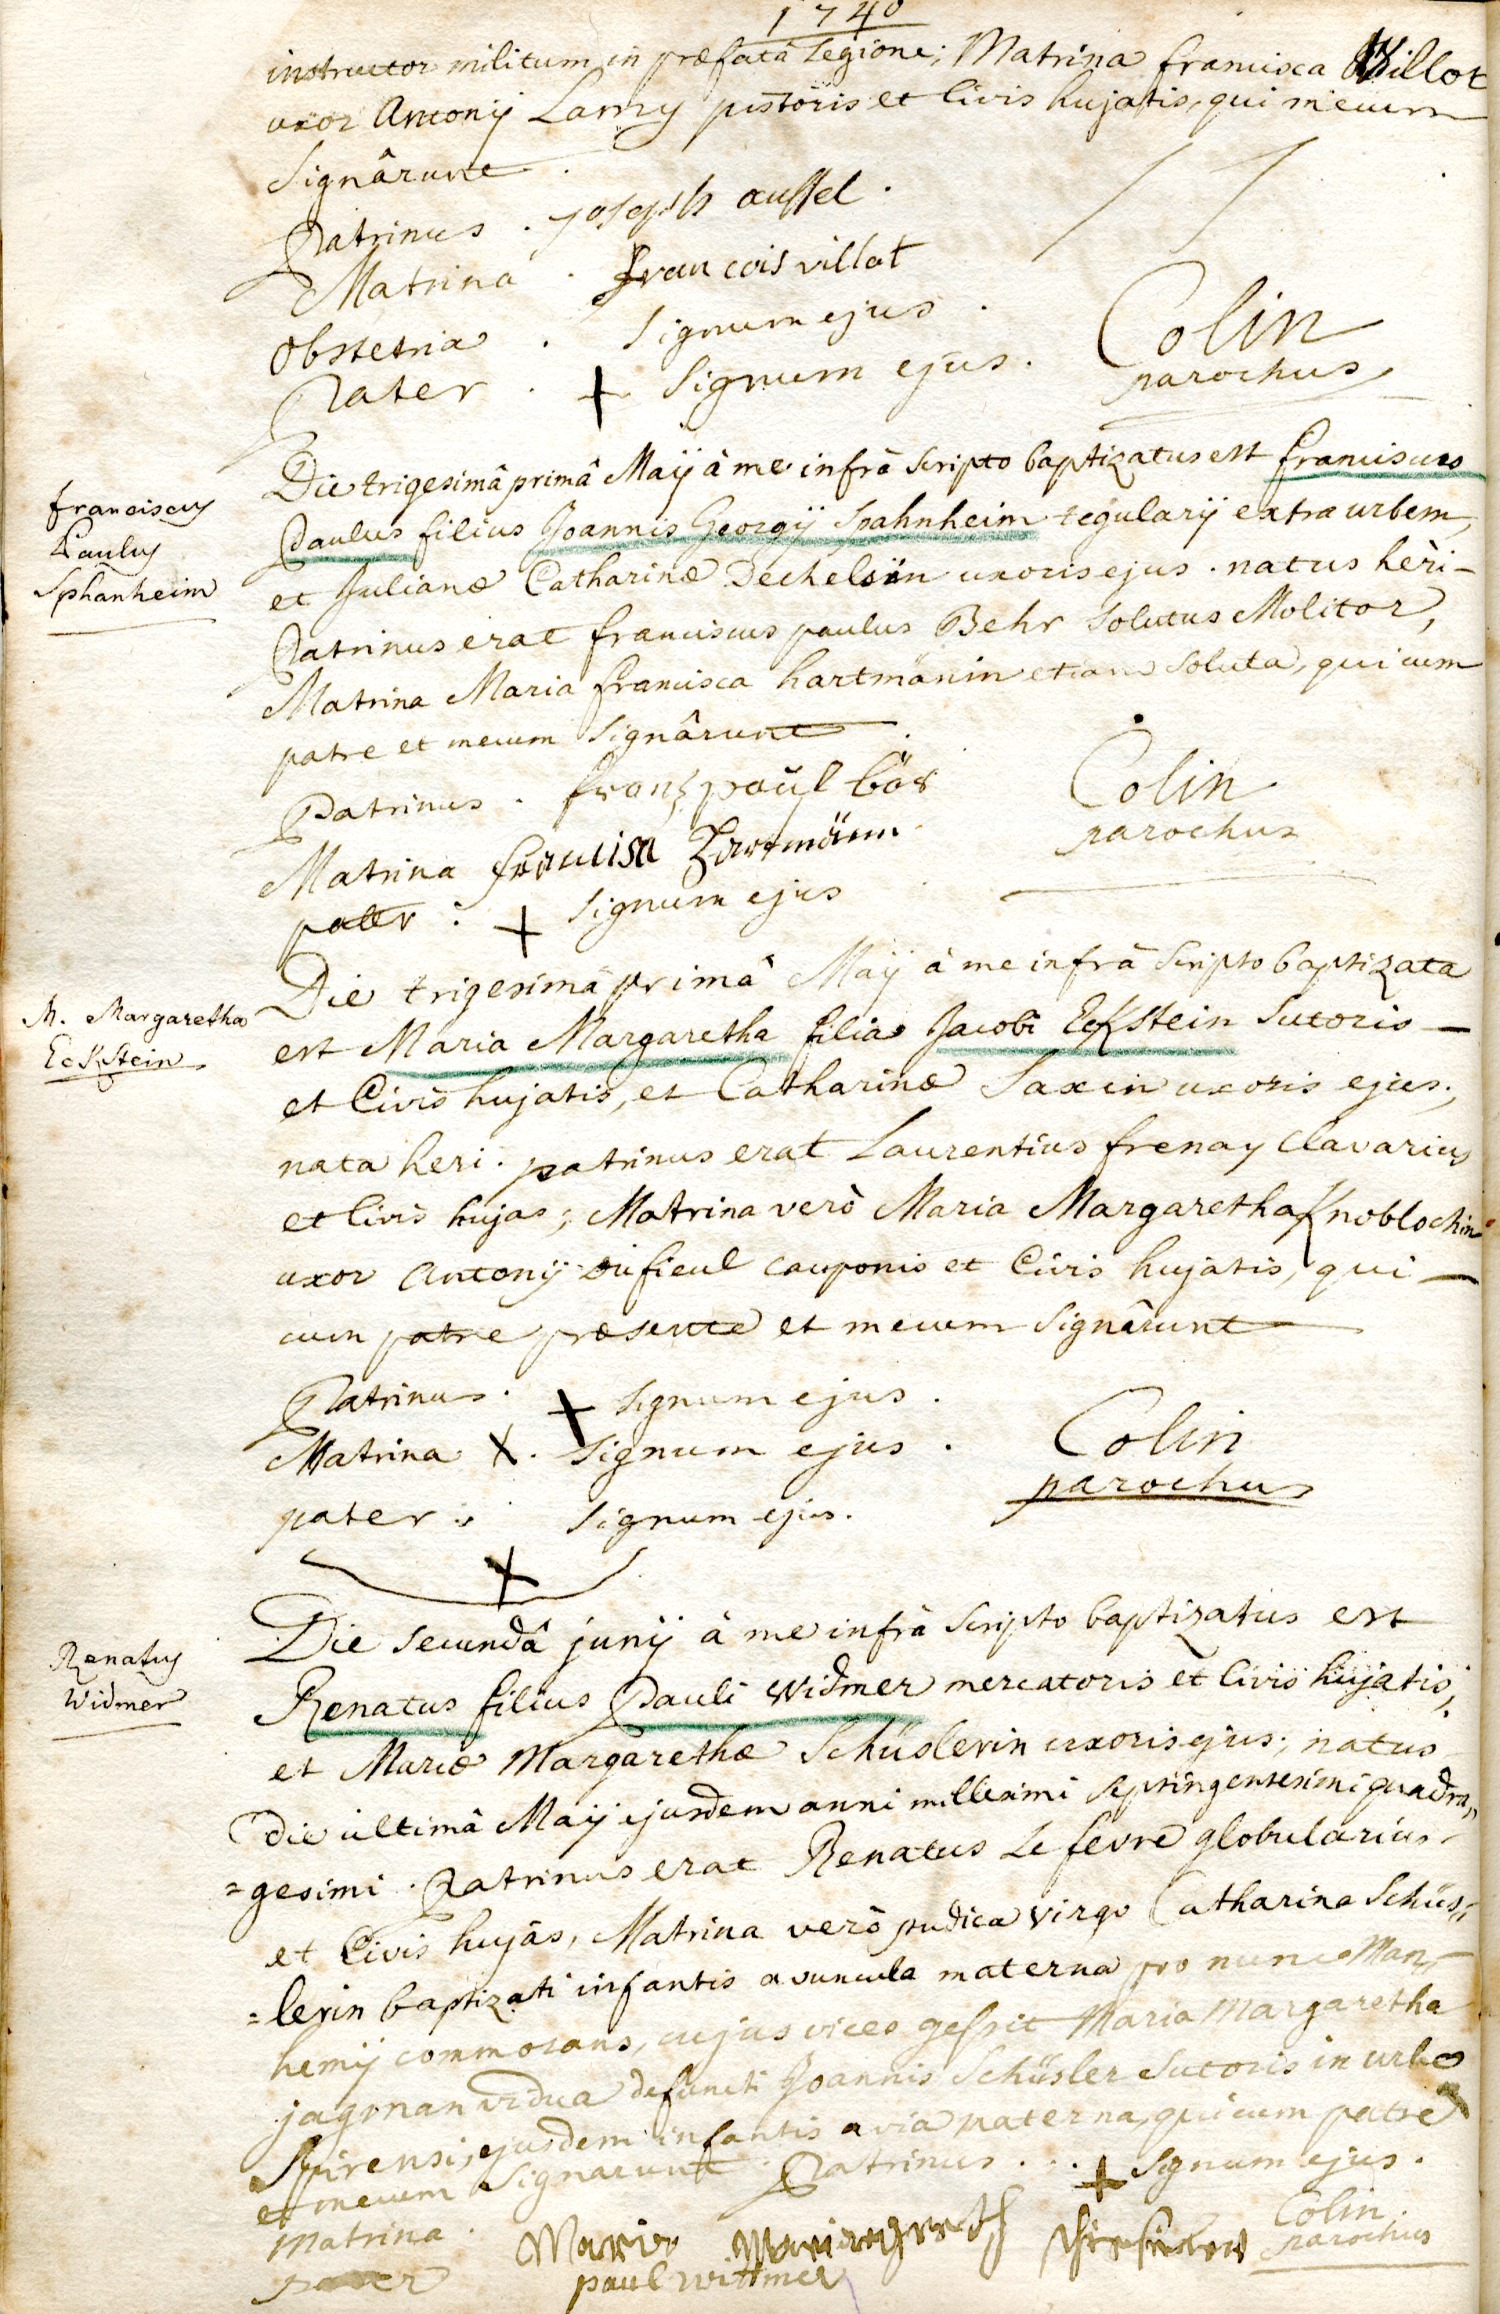 1740
instructor militum in præfatâ Legione; Matrina francisca Villot
uxor Antonij Lamy pistoris et Civis hujatis, qui mecum
Signârunt
Patrinus . joseph aussel .
Matrina . francois villot
Obstetrix . Signum ejus .
Pater . + Signum ejus .
Colin
parochus
franciscus
Paulus
Sphanheim
Die trigesimâ primâ Maij â me infrâ scripto baptizatus est franciscus
Paulus filius Joannis Georgij Spahnheim tegularij extra urbem,
et Julianæ Catharinæ Dechelsin uxoris ejus . natus heri -
Patrinus erat franciscus paulus Behr solutus Molitor,
Matrina Maria francisca hartmänin etiam soluta, qui cum
patre et mecum Signârunt .
Patrinus . frantz paul bär
Matrina francisca Hartmänin
pater : + Signum ejus
Colin
parochus
M. Margaretha
Eckstein
Die trigesimâ primâ Maij â me infrâ scripto baptizata
est Maria Margaretha filia Jacobi Eckstein Sutoris -
et Civis hujatis, et Catharinæ Saxin uxoris ejus.,
nata heri . patrinus erat Laurentius frenay Clavarius
et Civis hujas; Matrina verò Maria Margaretha Knoblochin
uxor Antonij dificul cauponis et Civis hujatis, qui -
cum patre præsente et mecum Signârunt
Patrinus . + signum ejus .
Matrina X . Signum ejus .
pater : Signum ejus .
X
Colin
parochus
Renatus
Widmer
Die secundâ junij â me infrâ scripto baptizatus est
Renatus filius Pauli Widmer mercatoris et Civis hujatis;
et Mariæ Margarethæ Schüslerin uxoris ejus; natus
Die ultimâ Maij ejusdem anni millesimi septingentesimi quadra„
=gesimi . Patrinus erat Renatus Le fevre globularius
et Civis hujas, Matrina verò pudica virgo Catharina Schüs„
=lerin baptizati infantis avuncula materna pro nunc Man-
hemij commorans, cujus vices gessit Maria Margaretha
jagman vidua defuncti Joannis Schüsler Sutoris in urbe
Spirensi, ejusdem infantis avia materna, qui cum patre
et mecum Signarunt . Patrinus . . . + Signum ejus .
Matrina . Maria
pater paul wittmer
Colin
parochus